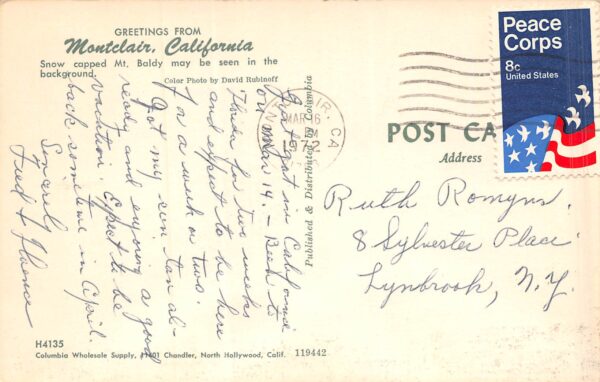 GREETINGS FROM
Montclair, California
Snow capped Mt. Baldy may be seen in the
background.
Color Photo by David Rubinoff
Just got in California
on Mar 14. – Been to
Florida for two weeks
and expect to be here
for a week or two.
Got my sun tan al-
ready and enjoying a good
vacation. Expect to be
back sometime in April.
Sincerely
Fred & Florence
Published & Distributed by Columbia
H4135
Columbia Wholesale Supply, 11401 Chandler, North Hollywood, Calif.
119442
MAR 16
1972
CA
Peace
Corps
8c
United States
POST CA
Address
Ruth Romyns.
8 Sylvester Place
Lynbrook, N.Y.